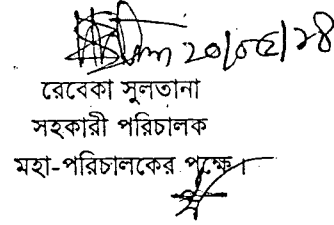 ২০/০৫/২৪
রেবেকা সুলতানা
সহকারী পরিচালক
মহা-পরিচালকের পক্ষে।